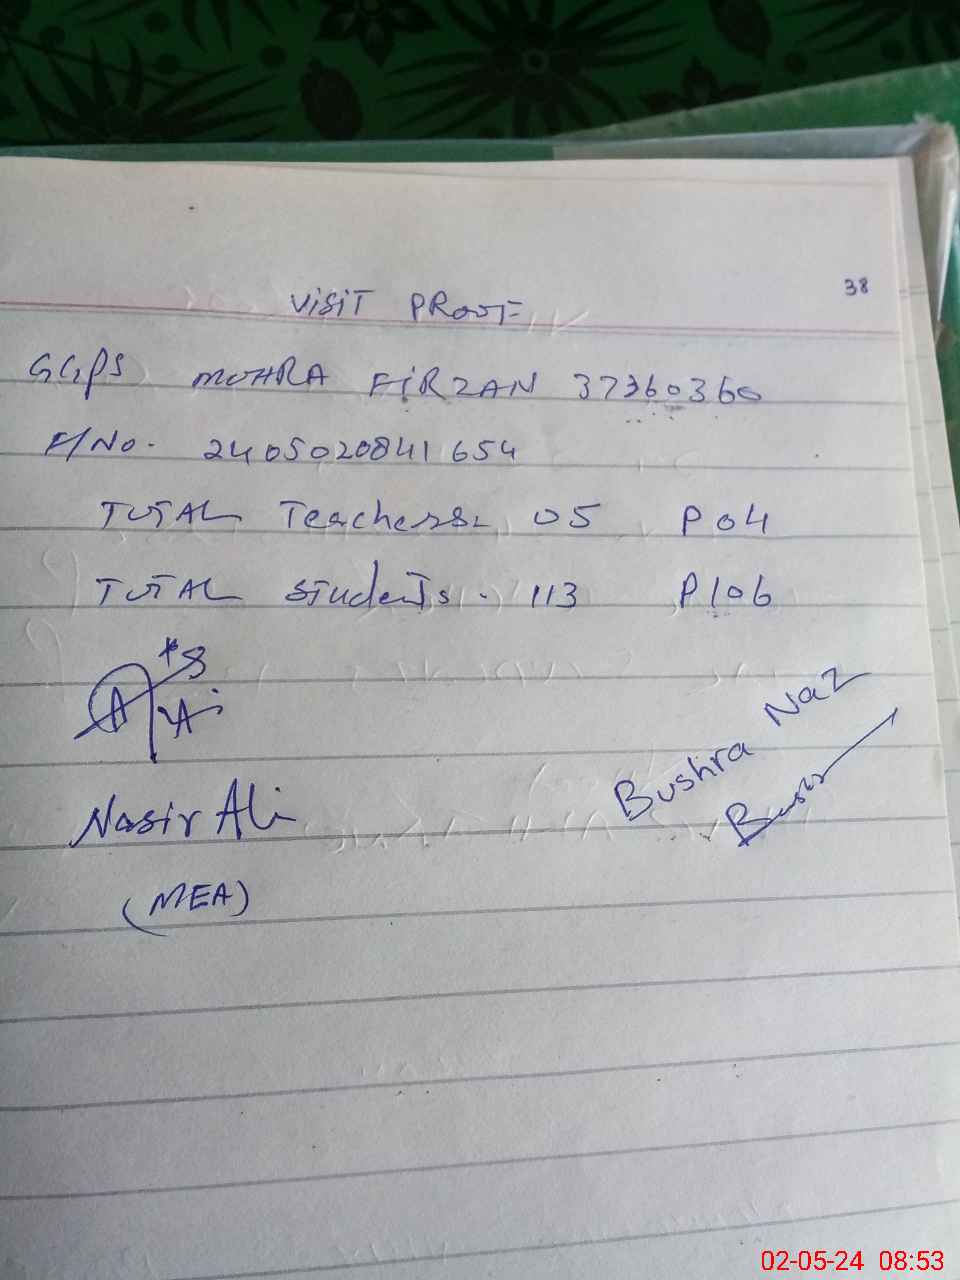 38
VISIT PROOF
GGPS MOHRA FIRZAN 37360360
F/No. 2405020841654
TOTAL Teachers. 05 P 04
TOTAL Students. 113 P 106
Nasir Ali
(MEA)
Bushra Naz
02-05-24 08:53